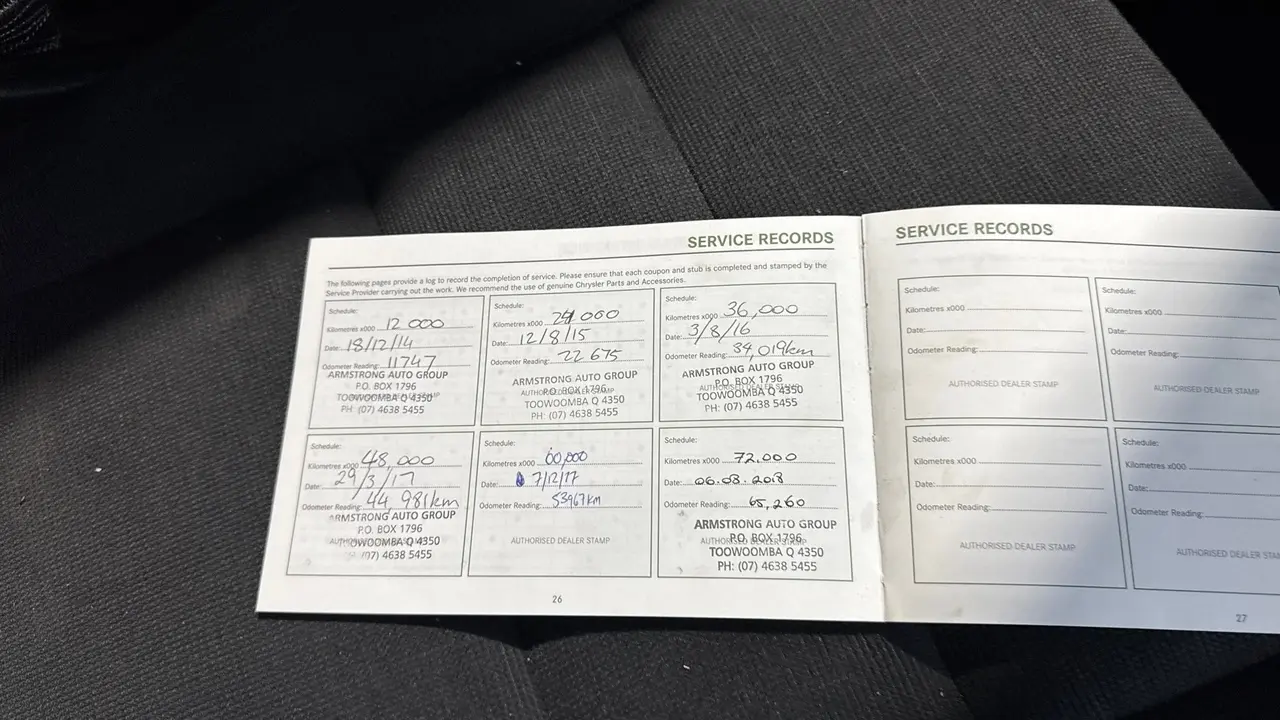 SERVICE RECORDS
The following pages provide a log to record the completion of service. Please ensure that each coupon and stub is completed and stamped by the
Service Provider carrying out the work. We recommend the use of genuine Chrysler Parts and Accessories.
Schedule:
Kilometres x000 12 000
Date: 18/12/14
Odometer Reading: 11747
ARMSTRONG AUTO GROUP
P.O. BOX 1796
TOOWOOMBA Q 4350
PH: (07) 4638 5455
Schedule:
Kilometres x000 24,000
Date: 12/8/15
Odometer Reading: 22 675
ARMSTRONG AUTO GROUP
P.O. BOX 1796
AUTHORISED DEALER STAMP
TOOWOOMBA Q 4350
PH: (07) 4638 5455
Schedule:
Kilometres x000 36,000
Date: 3/8/16
Odometer Reading: 34,019km
ARMSTRONG AUTO GROUP
P.O. BOX 1796
AUTHORISED DEALER STAMP
TOOWOOMBA Q 4350
PH: (07) 4638 5455
Schedule:
Kilometres x000 48,000
Date: 29/3/17
Odometer Reading: 44,981km
ARMSTRONG AUTO GROUP
P.O. BOX 1796
TOOWOOMBA Q 4350
(07) 4638 5455
Schedule:
Kilometres x000 60,000
Date: 7/12/17
Odometer Reading: 53967KM
AUTHORISED DEALER STAMP
Schedule:
Kilometres x000 72.000
Date: 06.08.2018
Odometer Reading: 65,260
ARMSTRONG AUTO GROUP
P.O. BOX 1796
AUTHORISED DEALER STAMP
TOOWOOMBA Q 4350
PH: (07) 4638 5455
26
SERVICE RECORDS
Schedule:
Kilometres x000
Date:
Odometer Reading:
AUTHORISED DEALER STAMP
Schedule:
Kilometres x000
Date:
Odometer Reading:
AUTHORISED DEALER STAMP
Schedule:
Kilometres x000
Date:
Odometer Reading:
AUTHORISED DEALER STAMP
Schedule:
Kilometres x000
Date:
Odometer Reading:
AUTHORISED DEALER
27